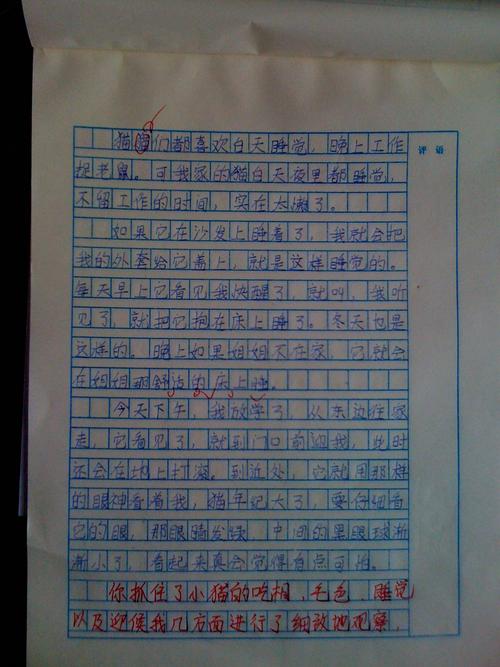 评语
猫们都喜欢白天睡觉,晚上工作
捉老鼠。可我家的猫白天夜里都睡觉,
不留工作的时间,实在太懒了。
如果它在沙发上睡着了,我就会把
我的外套给它盖上,就是这样睡觉的。
每天早上它看见我快醒了,就叫,我听
见了,就把它抱在床上睡了。冬天也是
这样的。晚上如果姐姐不在家,它就会
在姐姐那舒适的床上睡。
今天下午,我放学了,从东边往家
走,它看见了,就到门口前迎我,此时
还会在地上打滚。到近处,它就用那样
的眼神看着我,猫年纪大了,要仔细看
它的眼,那眼睛发绿,中间的黑眼球渐
渐小了,看起来真会觉得有点可怕。
你抓住了小猫的吃相、毛色、睡觉
以及迎候我几方面进行了细致地观察,